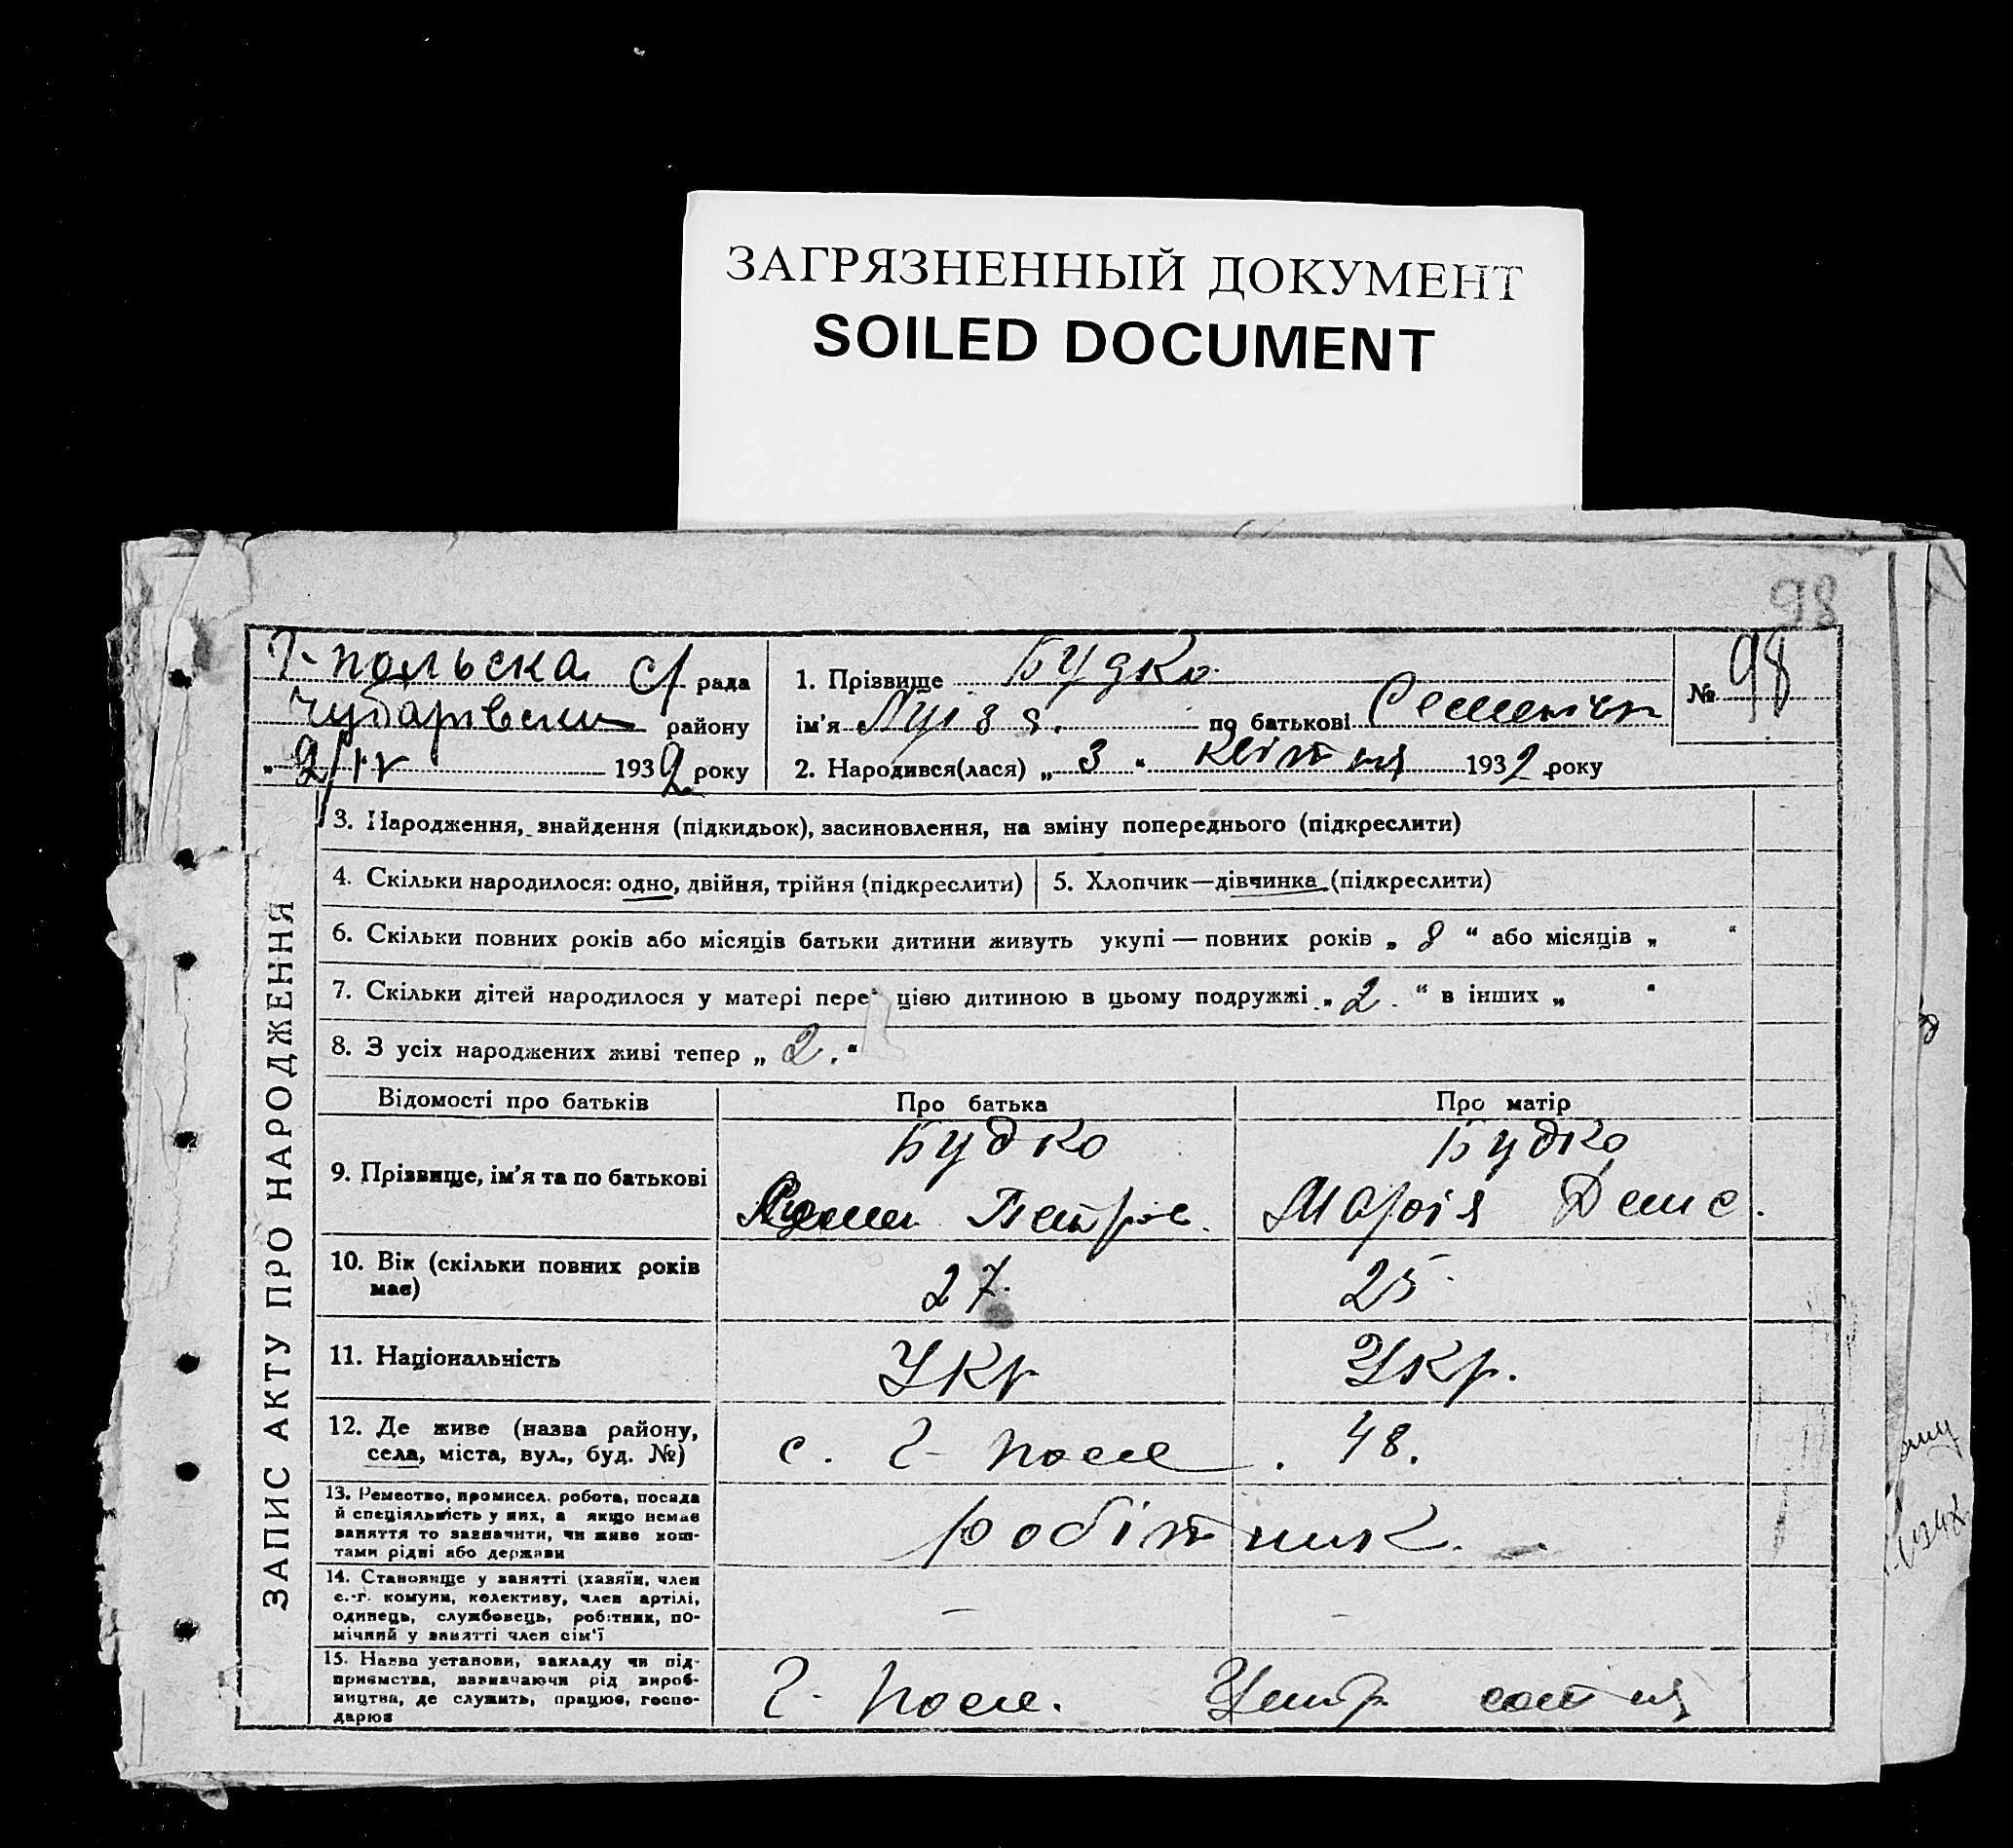 ЗАГРЯЗНЕННЫЙ ДОКУМЕНТ
SOILED DOCUMENT
98
Г-польска с/ рада
района
„ 9/IV 1932 року
1. Прізвище Будко
ім'я по батькові
2. Народився(лася) „ 3 “ квітня 1932 року
№ 98
ЗАПИС АКТУ ПРО НАРОДЖЕННЯ
3. Народження, знайдення (підкидьок), засиновлення, на зміну попереднього (підкреслити)
4. Скільки народилося: одно, двійня, трійня (підкреслити)
5. Хлопчик—дівчинка (підкреслити)
6. Скільки повних років або місяців батьки дитини живуть укупі — повних років „ 8 “ або місяців „ “
7. Скільки дітей народилося у матері пере цією дитиною в цьому подружжі „ 2. “ в інших „ “
8. З усіх народжених живі тепер „ 2. “
Відомості про батьків
Про батька
Про матір
9. Прізвище, ім'я та по батькові
Будко
Петров.
Будко
Марія Денис.
10. Вік (скільки повних років
має)
27.
25.
11. Національність
Укр
Укр.
12. Де живе (назва району,
села, міста, вул., буд. №)
с. Г-поле. 48.
13. Ремество, промисел, робота, посада
й спеціяльність у них, а якщо немає
заняття то зазначити, чи живе кош-
тами рідні або держави
робітник.
14. Становище у занятті (хазяїн, член
с.-г. комуни, колективу, член артілі,
одинець, службовець, робітник, по-
мічний у занятті член сім'ї
—
—
15. Назва установи, закладу чи під-
приємства, зазначаючи рід вироб-
ництва, де служить, працює, госпо-
дарює
Г-поле.